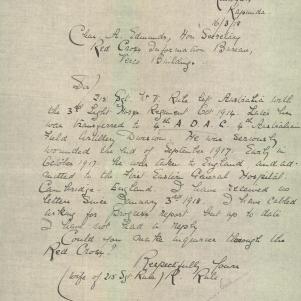 Kapunda
16/3/18
Chas. A. Edmunds, Hon Secretary
Red Cross Information Bureau,
Verco Building.
Sir/
218 Sgt Rule left Australia with
the 3rd Light Horse Regiment Oct 1914. Later he
was transferred to 4th D.A.C. 4th Australian
Field Artillery Division. He was seriously
wounded the end of September 1917. Early in
October 1917 he was taken to England and ad-
mitted to the First Eastern General Hospital.
Cambridge England I have received no
letters since January 3rd 1918. I have cabled
asking for Progress report but up to date
I have not had a reply
Could you make inquiries through the
Red Cross?
Respectfully Yours
(wife of 218 Sgt Rule) R. Rule.